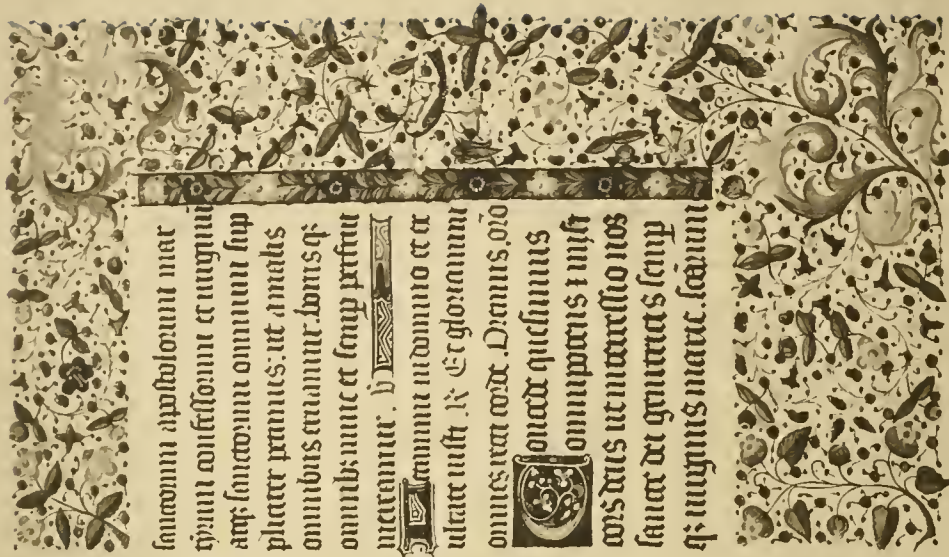 sanctorum apostolorum mar
tyrum confessorum et virginū
atqꝫ sanctorum omnium sup
pliciter petimus. ut a malis
omnibus eruamur bonisqꝫ
omnibꝫ nunc et semp perfrui
mereamur. V
Letamini in domino et ex
ultate iusti. R Et gloriamini
omnes recti corde. Oremus. orō
Concede quesumus
omnipotens et misɩ̄
cors deus ut intercessio nos
sancte dei genitricis semp̄
qꝫ virginis marie. scōrum